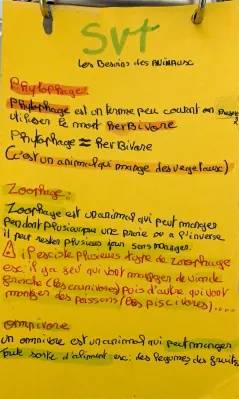 SVT
les Besoins des ANIMAUX
Phytophage
Phytophage est un terme peu courant on
utiliser le mort Herbivore
Phytophage = Her Bivore
(c'est un animal qui mange des vegetaux)
Zoophage:
Zoophage est un animal qui peut manger
pendant plusieur jour une proie ou a l'inverse
il peut rester plusieurs jour sans manger.
il existe plusieurs tipe de zoophage
exc: il y a seu qui vont manger de viande
(les carnivores) puis d'autre qui vont
manger des poissons (les piscivores)....
omnivore
un omnivore est un animal qui peut manger
toute sorte d'aliment exc: des legumes des fruits